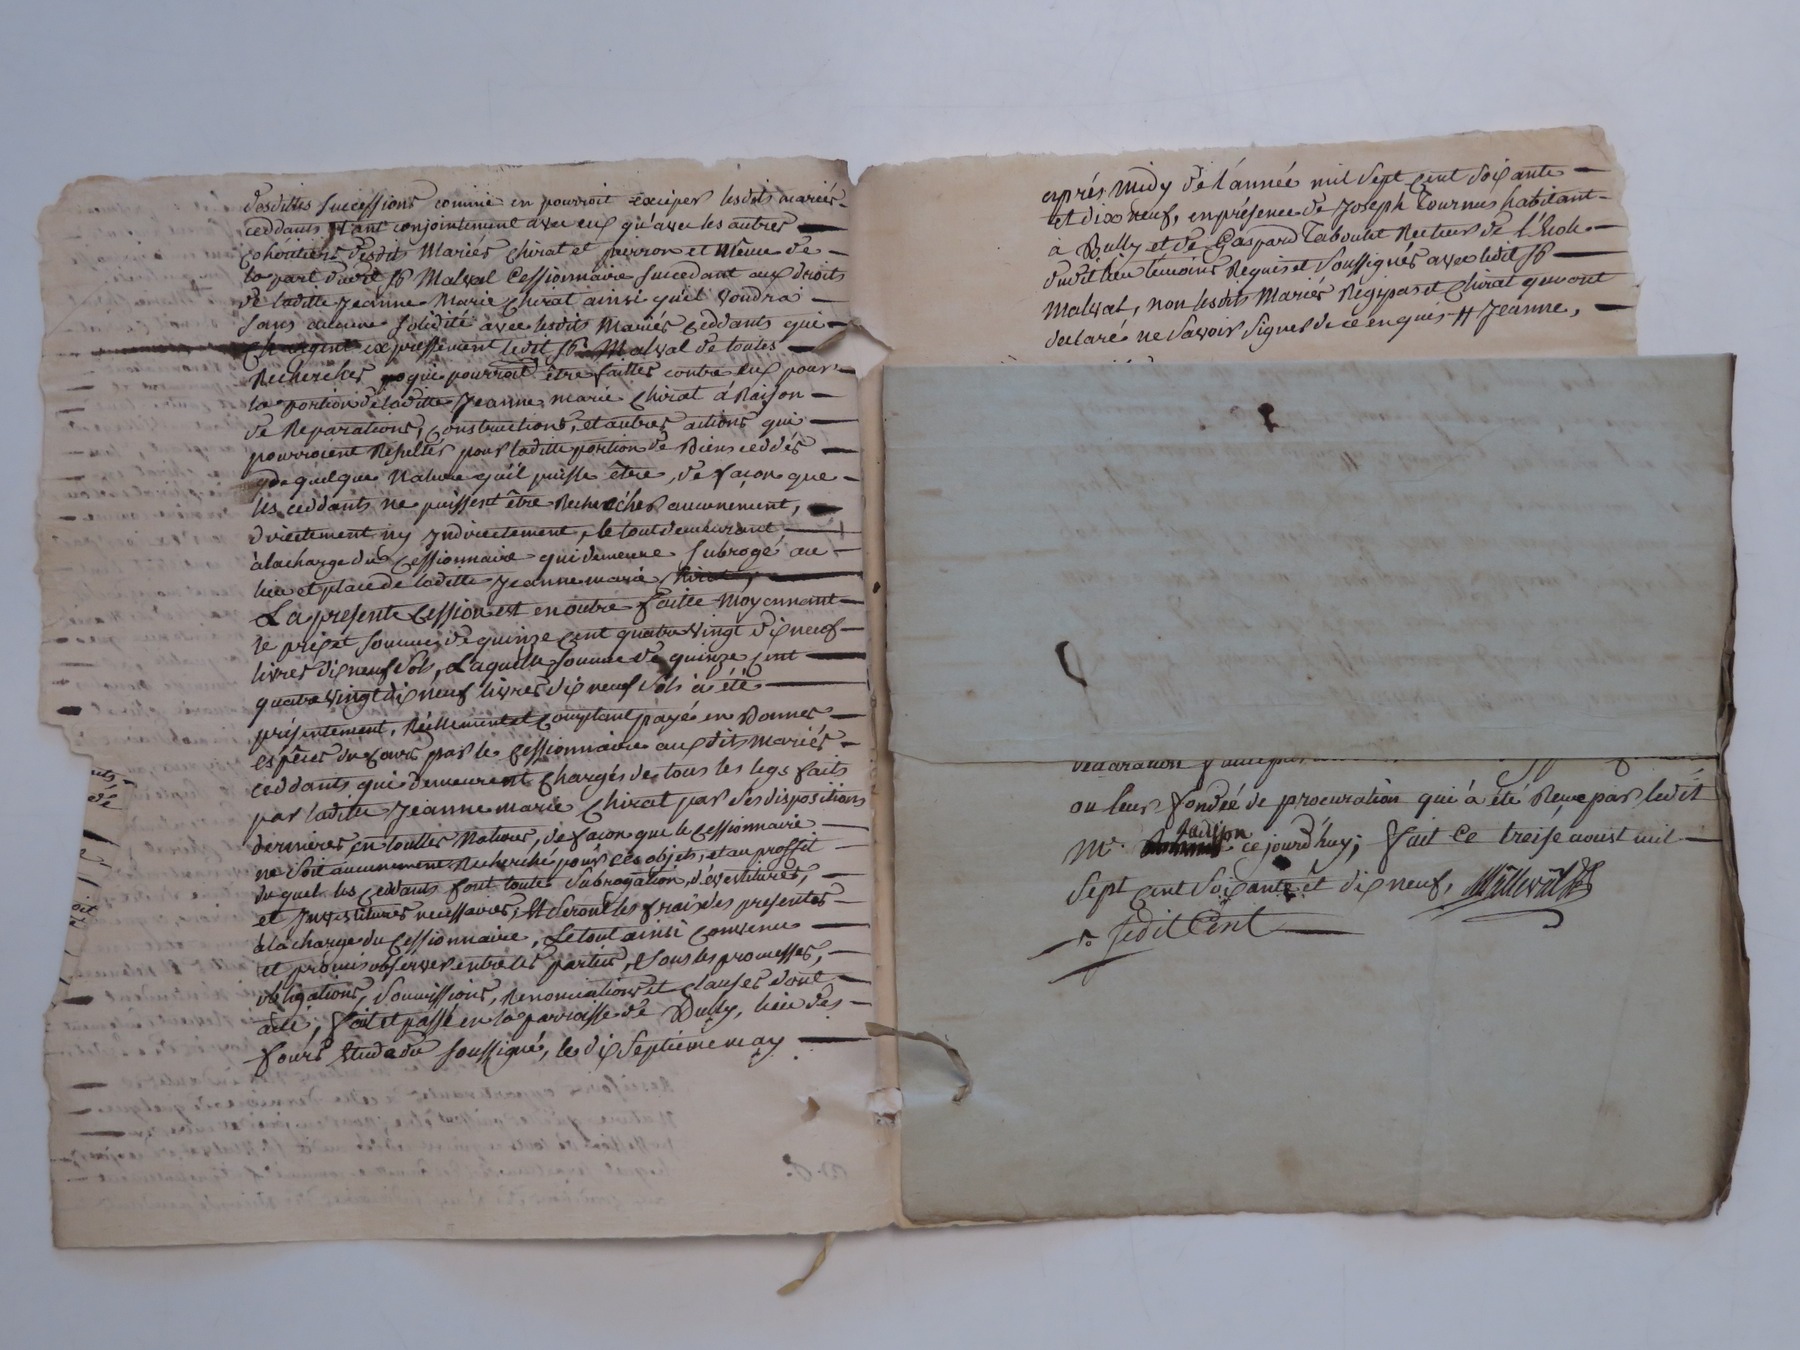 desdittes successions comme en pourroit exciper lesdits mariés
ceddants tant conjointement avec eux qu'avec les autres
cohéritiers desdits Mariés Chirat et perron et Même de
la part dudit Sr Malval Cessionnaire succedant aux droits
de laditte Jeanne Marie Chirat ainsi qu'il voudra
sans aucune solidité avec lesdits Mariés Ceddants qui
chargent expressement ledit Sr Malval de toutes
Recherches qui pourroit être faittes contre eux pour
la portion de laditte Jeanne marie Chirat à Raison
de Reparations, Constructions, et autres actions qui
pourroient Resulter pour laditte portion de Biens ceddés
de quelque Nature qu'il puisse être, de façon que
les ceddants ne puissent être Recherchés aucunement,
directement ny Indirectement, le tout demeurant
à la charge du Cessionnaire qui demeure subrogé au
lieu et place de laditte Jeanne marie Chirat
La presente Cession est en outre faitte Moyennant
le prix et somme de quinze Cent quatre vingt dix neuf
livres dix neuf sols, Laquelle somme de quinze Cent
quatre vingt dix neuf livres dix neuf sols à été
présentement, Réellement et Comptant payé en Bonnes
espèces du Cours par le Cessionnaire auxdits mariés
ceddants qui demeurent Chargés de tous les legs faits
par laditte Jeanne marie Chirat par ses dispositions
dernières en touttes Natures, de façon que le Cessionnaire
ne soit aucunement Recherché pour ces objets, et au proffit
duquel les Ceddants font toute subrogation, dévestitures,
et Investitures necessaires, et seront les frais des presentes
à la charge du Cessionnaire, Le tout ainsi Convenu
et promis observer entre les parties, sous les promesses,
obligations, soumissions, Renonciations et Clauses dont
acte, fait et passé en la parroisse de Bully, lieu des
fours étude du soussigné, le dix septième may
après Midy de l'année mil sept Cent soixante
et dix neuf, en présence de Joseph Tournus habitant
à Bully et de Gaspard Taboulet Recteur de l'Ecole
dudit lieu témoins Requis et soussignés avec ledit Sr
Malval, non lesdits Mariés Regipas et Chirat qui ont
declaré ne savoir signer de ce enquis # Jeanne,
declaration
ou leur fondée de procuration qui à été Reçue par ledit
Me. ce jourd'huy; fait Ce treise aoust mil
Sept Cent Soixante et dix neuf,